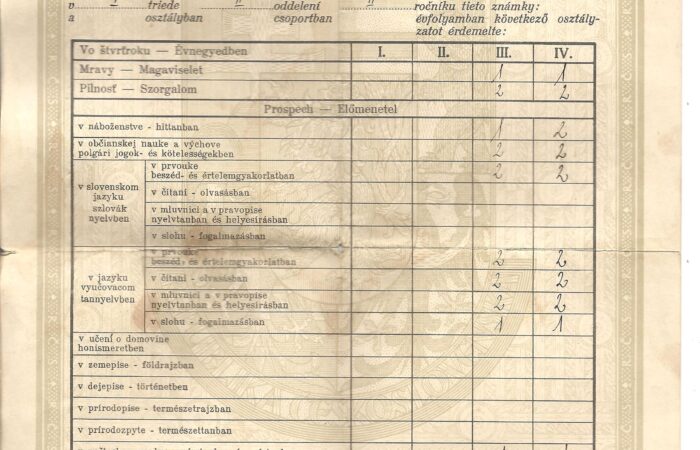 v " triede " oddelení " ročníku tieto známky:
a osztályban csoportban évfolyamban következő osztály-
zatot érdemelte:
Vo štvrťroku — Évnegyedben I. II. III. IV.
Mravy — Magaviselet 1 1
Pilnosť — Szorgalom 2 2
Prospech — Előmenetel
v náboženstve - hittanban 1 2
v občianskej nauke a výchove
polgári jogok- és kötelességekben 2 2
v slovenskom
jazyku
szlovák
nyelvben
v prvouke
beszéd- és értelemgyakorlatban 2 2
v čítaní - olvasásban
v mluvnici a v pravopise
nyelvtanban és helyesírásban
v slohu - fogalmazásban
v jazyku
vyučovacom
tannyelvben
v prvouke
beszéd- és értelemgyakorlatban 2 2
v čítaní - olvasásban 2 2
v mluvnici a v pravopise
nyelvtanban és helyesírásban 2 2
v slohu - fogalmazásban 1 1
v učení o domovine
honismeretben
v zemepise - földrajzban
v dejepise - történetben
v prírodopise - természetrajzban
v prírodozpyte - természettanban